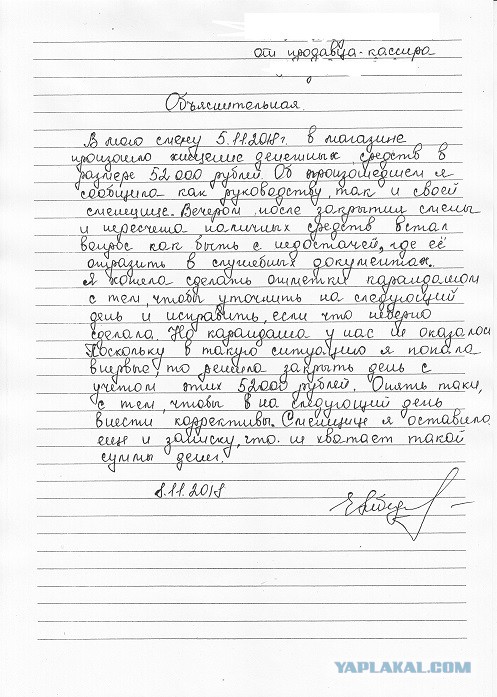 от продавца-кассира
Объяснительная.
В мою смену 5.11.2018г. в магазине
произошло хищение денежных средств в
размере 52000 рублей. Об произошедшем я
сообщила как руководству, так и своей
сменщице. Вечером после закрытия смены
и пересчёта наличных средств встал
вопрос как быть с недостачей, где её
отразить в служебных документах.
Я хотела сделать отметки карандашом
с тем, чтобы уточнить на следующий
день и исправить, если что неверно
сделала. Но карандаша у нас не оказалось
Поскольку в такую ситуацию я попала
впервые, то решила закрыть день с
учётом этих 52000 рублей. Опять таки,
с тем, чтобы в на следующий день
внести коррективы. Сменщице я оставила
еще и записку, что не хватает такой
суммы денег.
8.11.2018
YAPLAKAL.COM